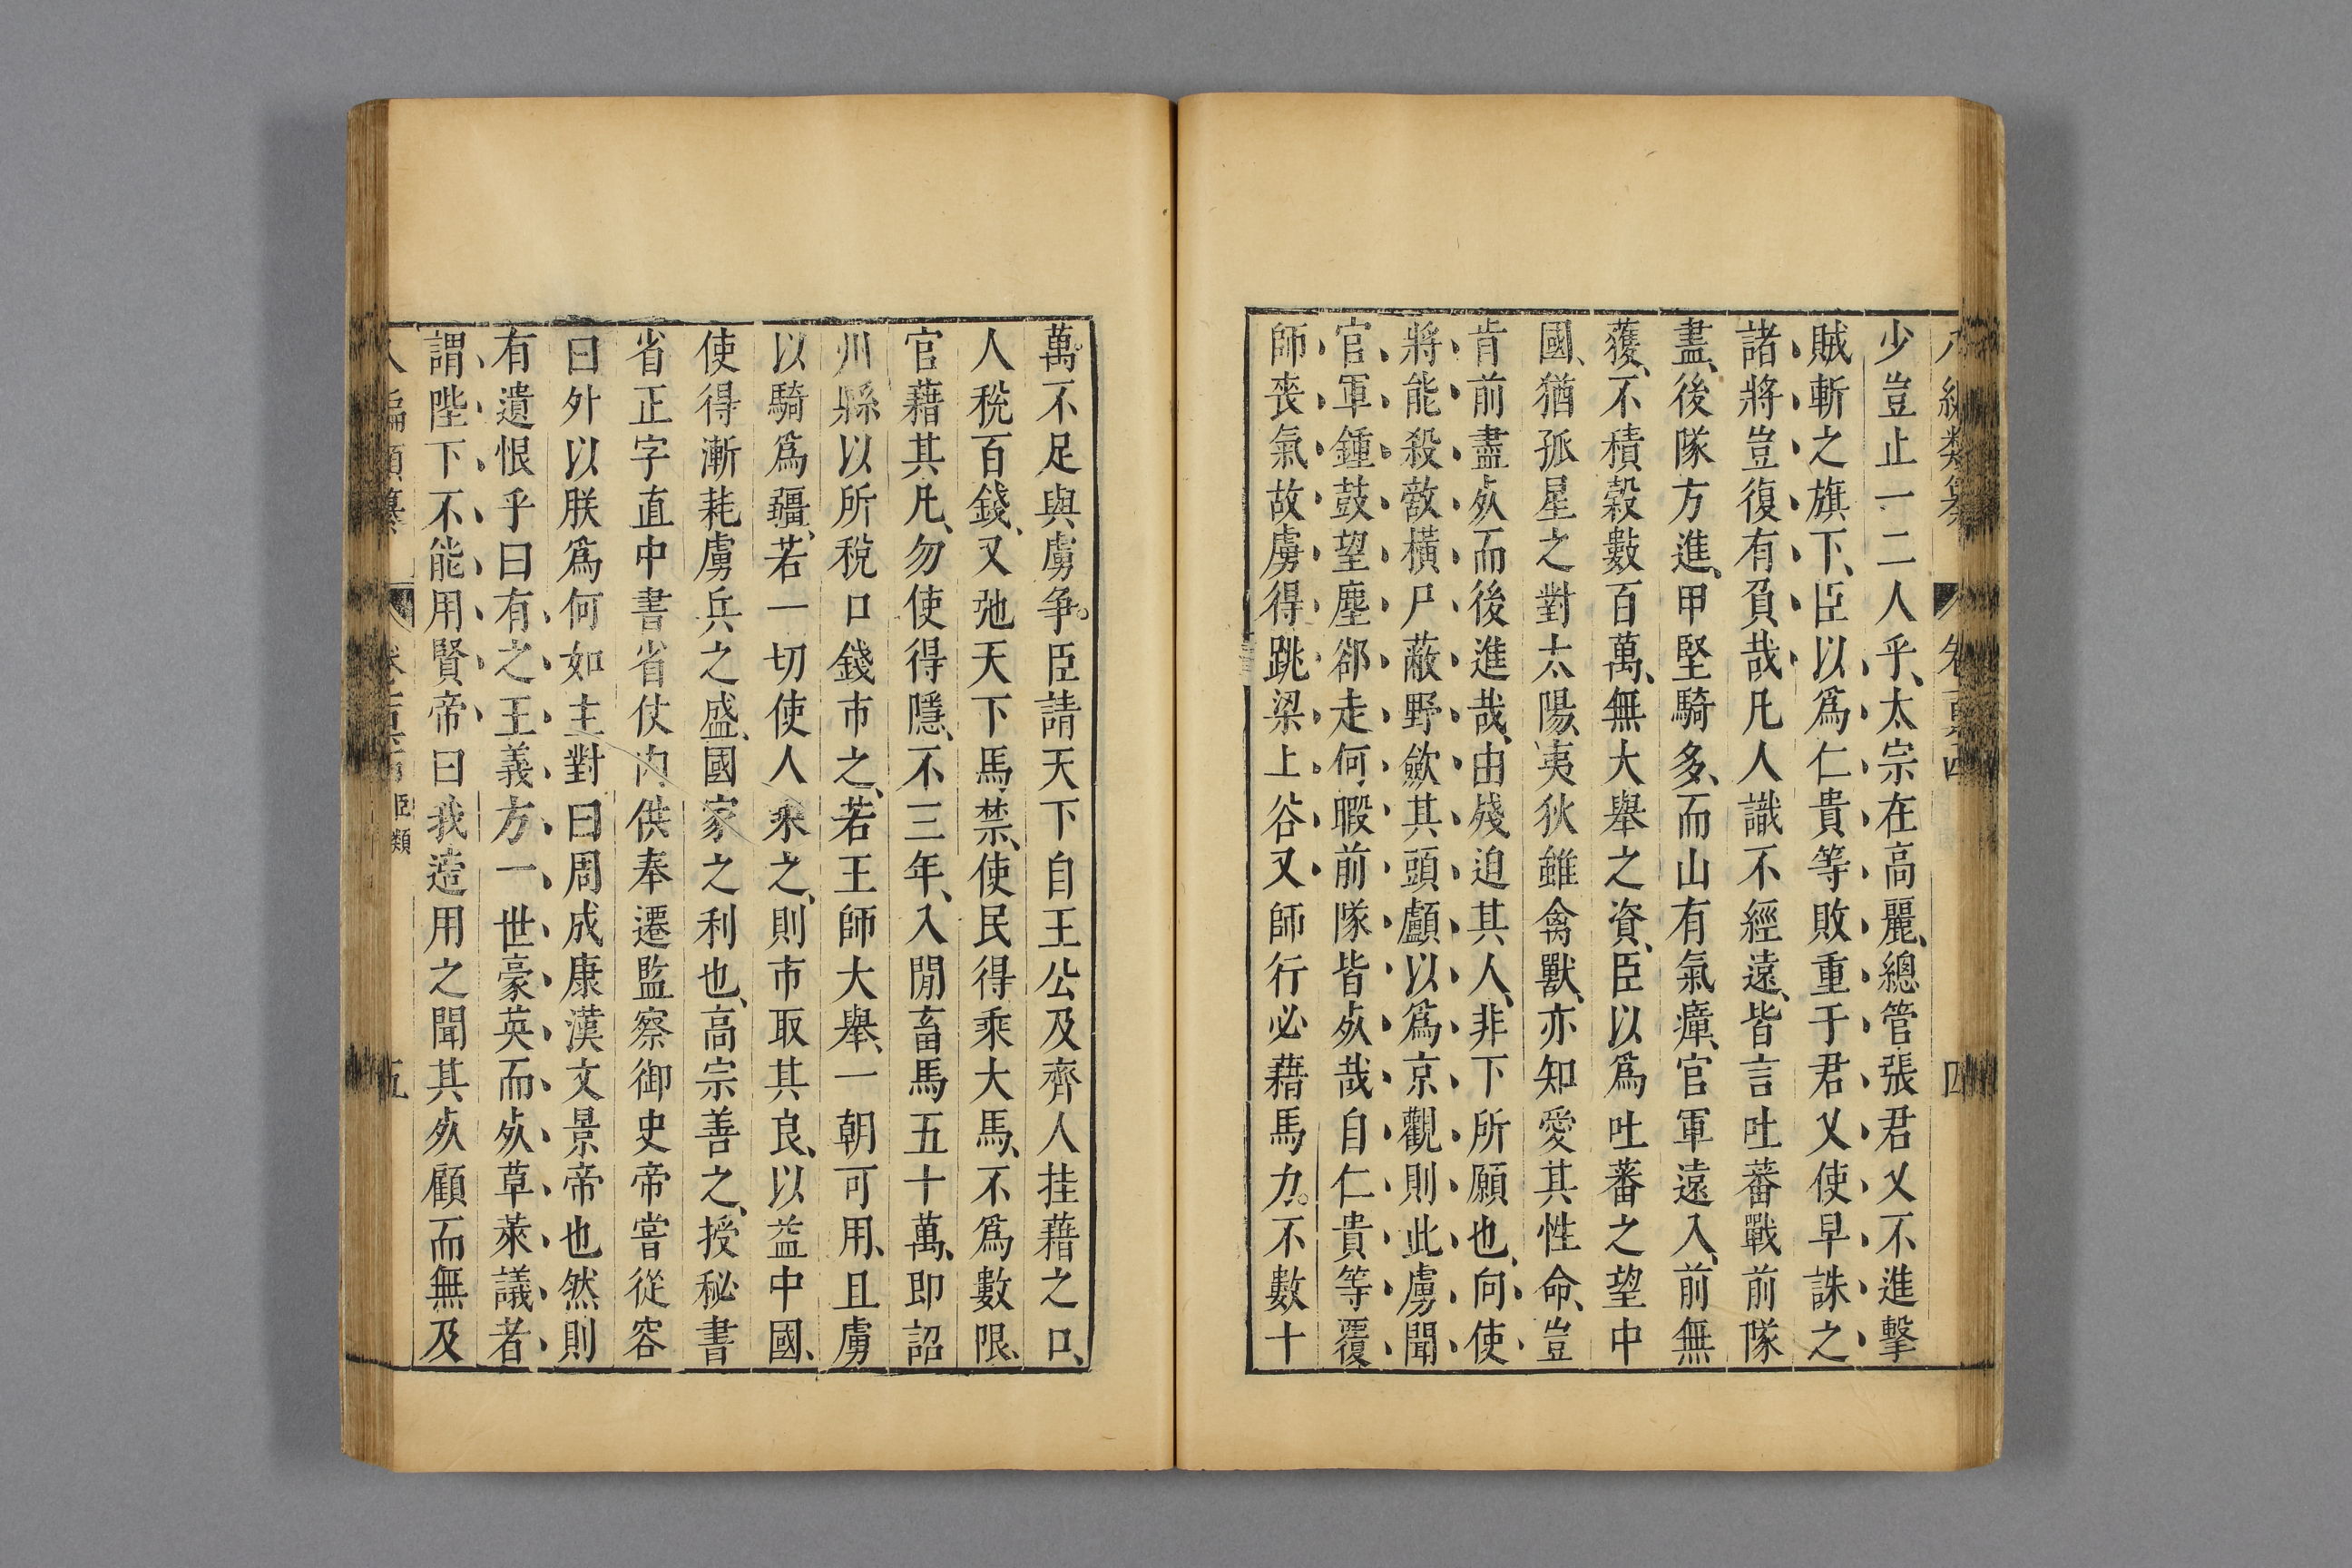 少豈止一二人乎、太宗在高麗、總管張君乂不進擊
賊斬之旗下、臣以爲仁貴等敗重于君乂使早誅之
諸將豈復有負哉凡人識不經遠、皆言吐蕃戰前隊
盡、後隊方進、甲堅騎多、而山有氣瘴、官軍遠入、前無
獲、不積穀數百萬、無大舉之資、臣以爲吐蕃之望中
國、猶孤星之對太陽、夷狄雖禽獸、亦知愛其性命、豈
肯前盡𣦸而後進哉、由殘迫其人、非下所願也、向使
將能殺敵橫尸蔽野斂其頭顱以爲京觀則此虜聞
官軍鍾鼓望塵郤走何暇前隊皆𣦸哉自仁貴等覆
師喪氣故虜得跳梁上谷又師行必藉馬力。不數十
萬。不足與虜争。臣請天下自王公及齊人挂藉之口、
人稅百錢、又弛天下馬禁、使民得乘大馬、不爲數限、
官藉其凡、勿使得隱、不三年、入閒畜馬五十萬、即詔
州縣以所稅口錢市之、若王師大舉、一朝可用、且虜
以騎爲疆、若一切使人乘之、則市取其良、以益中國、
使得漸耗虜兵之盛、國家之利也、高宗善之、授秘書
省正字直中書省仗內供奉遷監察御史帝嘗從容
曰外以朕爲何如主對曰周成康漢文景帝也然則
有遺恨乎曰有之王義方一世豪英而𣦸草萊議者
謂陛下不能用賢帝曰我造用之聞其𣦸顧而無及